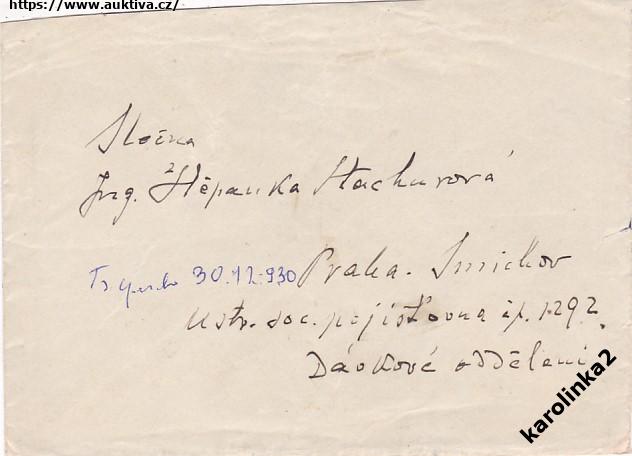 https://www.auktiva.cz/
Slečna
Ing. Štěpanka Stachurová
30.12.930 Praha. Smichov
Ustr. soc. pojišťovna čp. 1292.
Dávkové oddělení
karolinka2